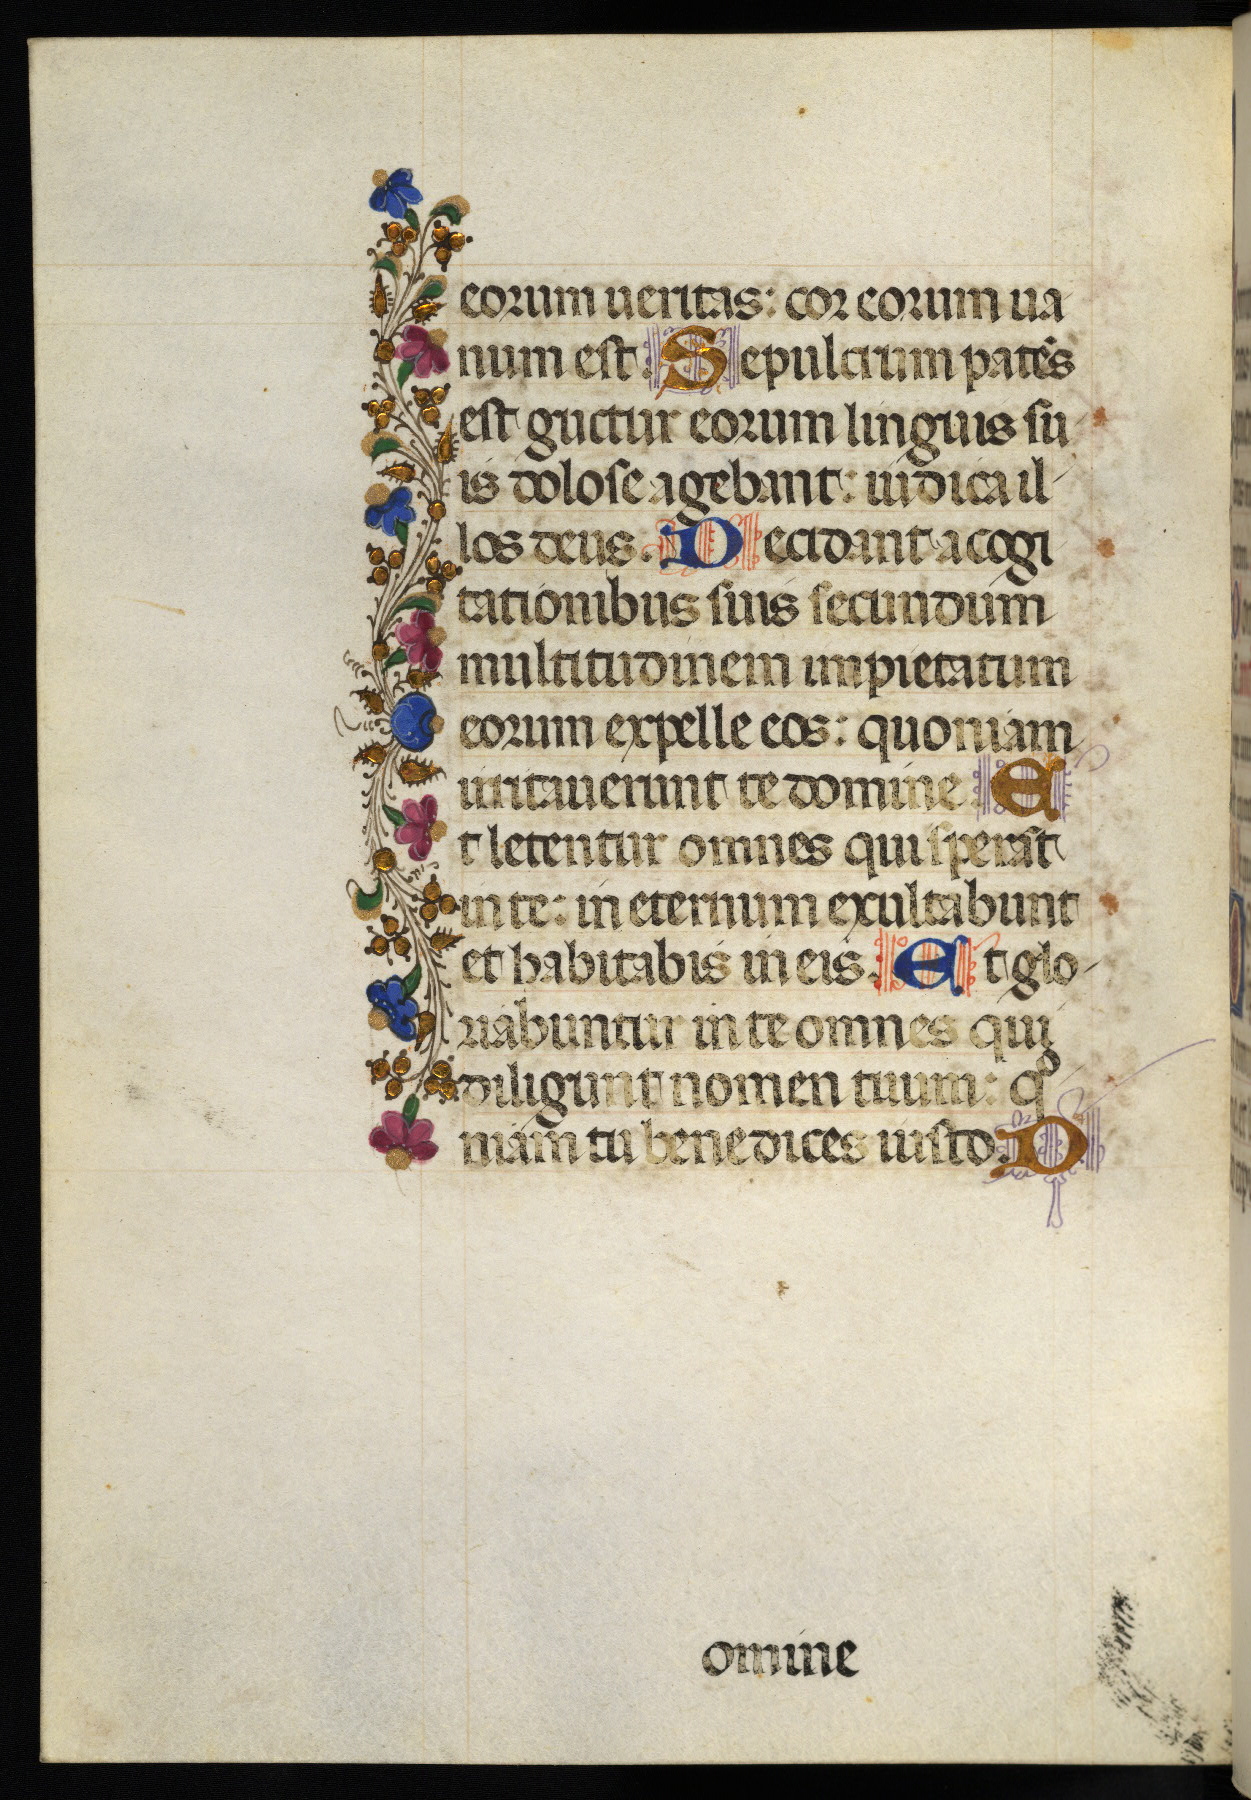 eorum ueritas: cor eorum ua
num est. Sepulcrum patēs
est guttur eorum linguis su
is dolose agebant: iudica il-
los deus. Decidant a cogi
tationibus suis secundum
multitudinem impietatum
eorum expelle eos: quoniam
irritauerunt te domine. E
t letentur omnes qui sperāt
in te: in eternum exultabunt
et habitabis in eis. Et glo-
riabuntur in te omnes qui
diligunt nomen tuum: qͦ
niam tu benedices iusto. D
omine